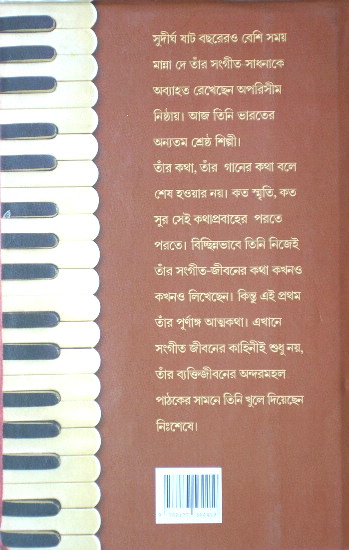 সুদীর্ঘ ষাট বছরেরও বেশি সময়
মান্না দে তাঁর সংগীত সাধনাকে
অব্যাহত রেখেছেন অপরিসীম
নিষ্ঠায়। আজ তিনি ভারতের
অন্যতম শ্রেষ্ঠ শিল্পী।
তাঁর কথা, তাঁর গানের কথা বলে
শেষ হওয়ার নয়। কত স্মৃতি, কত
সুর সেই কথাপ্রবাহের পরতে
পরতে। বিচ্ছিন্নভাবে তিনি নিজেই
তাঁর সংগীত-জীবনের কথা কখনও
কখনও লিখেছেন। কিন্তু এই প্রথম
তাঁর পূর্ণাঙ্গ আত্মকথা। এখানে
সংগীত জীবনের কাহিনীই শুধু নয়,
তাঁর ব্যক্তিজীবনের অন্দরমহল
পাঠকের সামনে তিনি খুলে দিয়েছেন
নিঃশেষে।